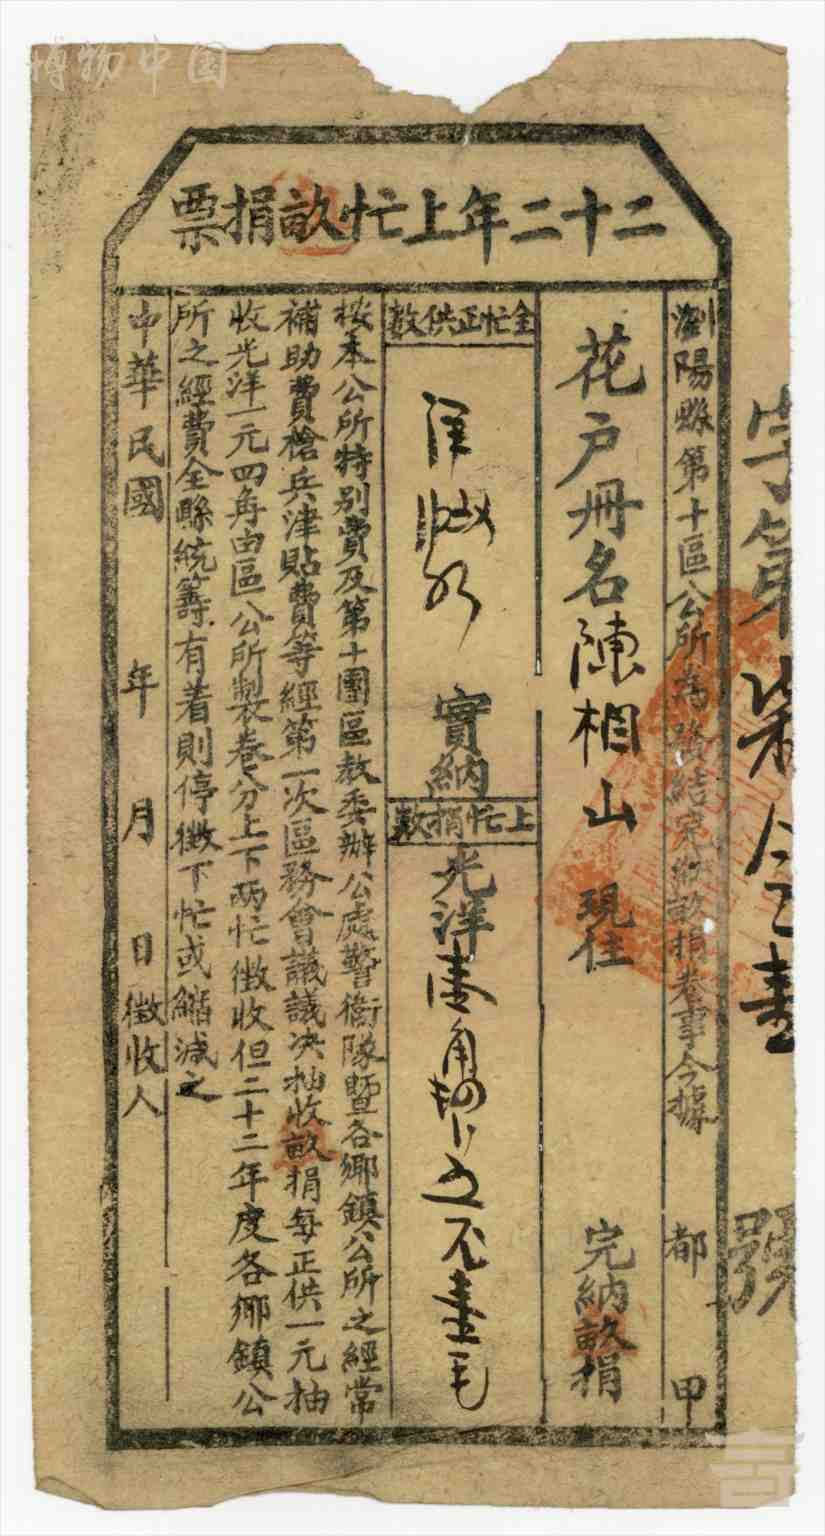 博物中国
二十二年上忙畝捐票
字第柒
號
瀏陽縣第十區公所為發給完納畝捐券事今據
都
甲
花戶冊名陳相山
現住
完納畝捐
全忙正供数
實納
上忙捐数
光洋壹角
按本公所特別費及第十團區教委辦公處警衛隊暨各鄉鎮公所之經常
補助費槍兵津貼費等經第一次區務會議議决抽收畝捐每正供一元抽
收光洋一元四角由區公所製卷分上下两忙徵收但二十二年度各鄉鎮公
所之經費全縣統籌有着則停徵下忙或縮減之
中華民國
年
月
日徵收人